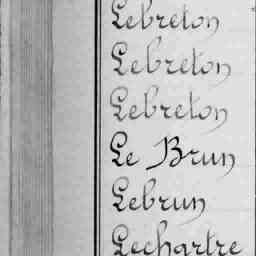 Lebreton
Lebreton
Lebreton
Le Brun
Lebrun
Lechartre